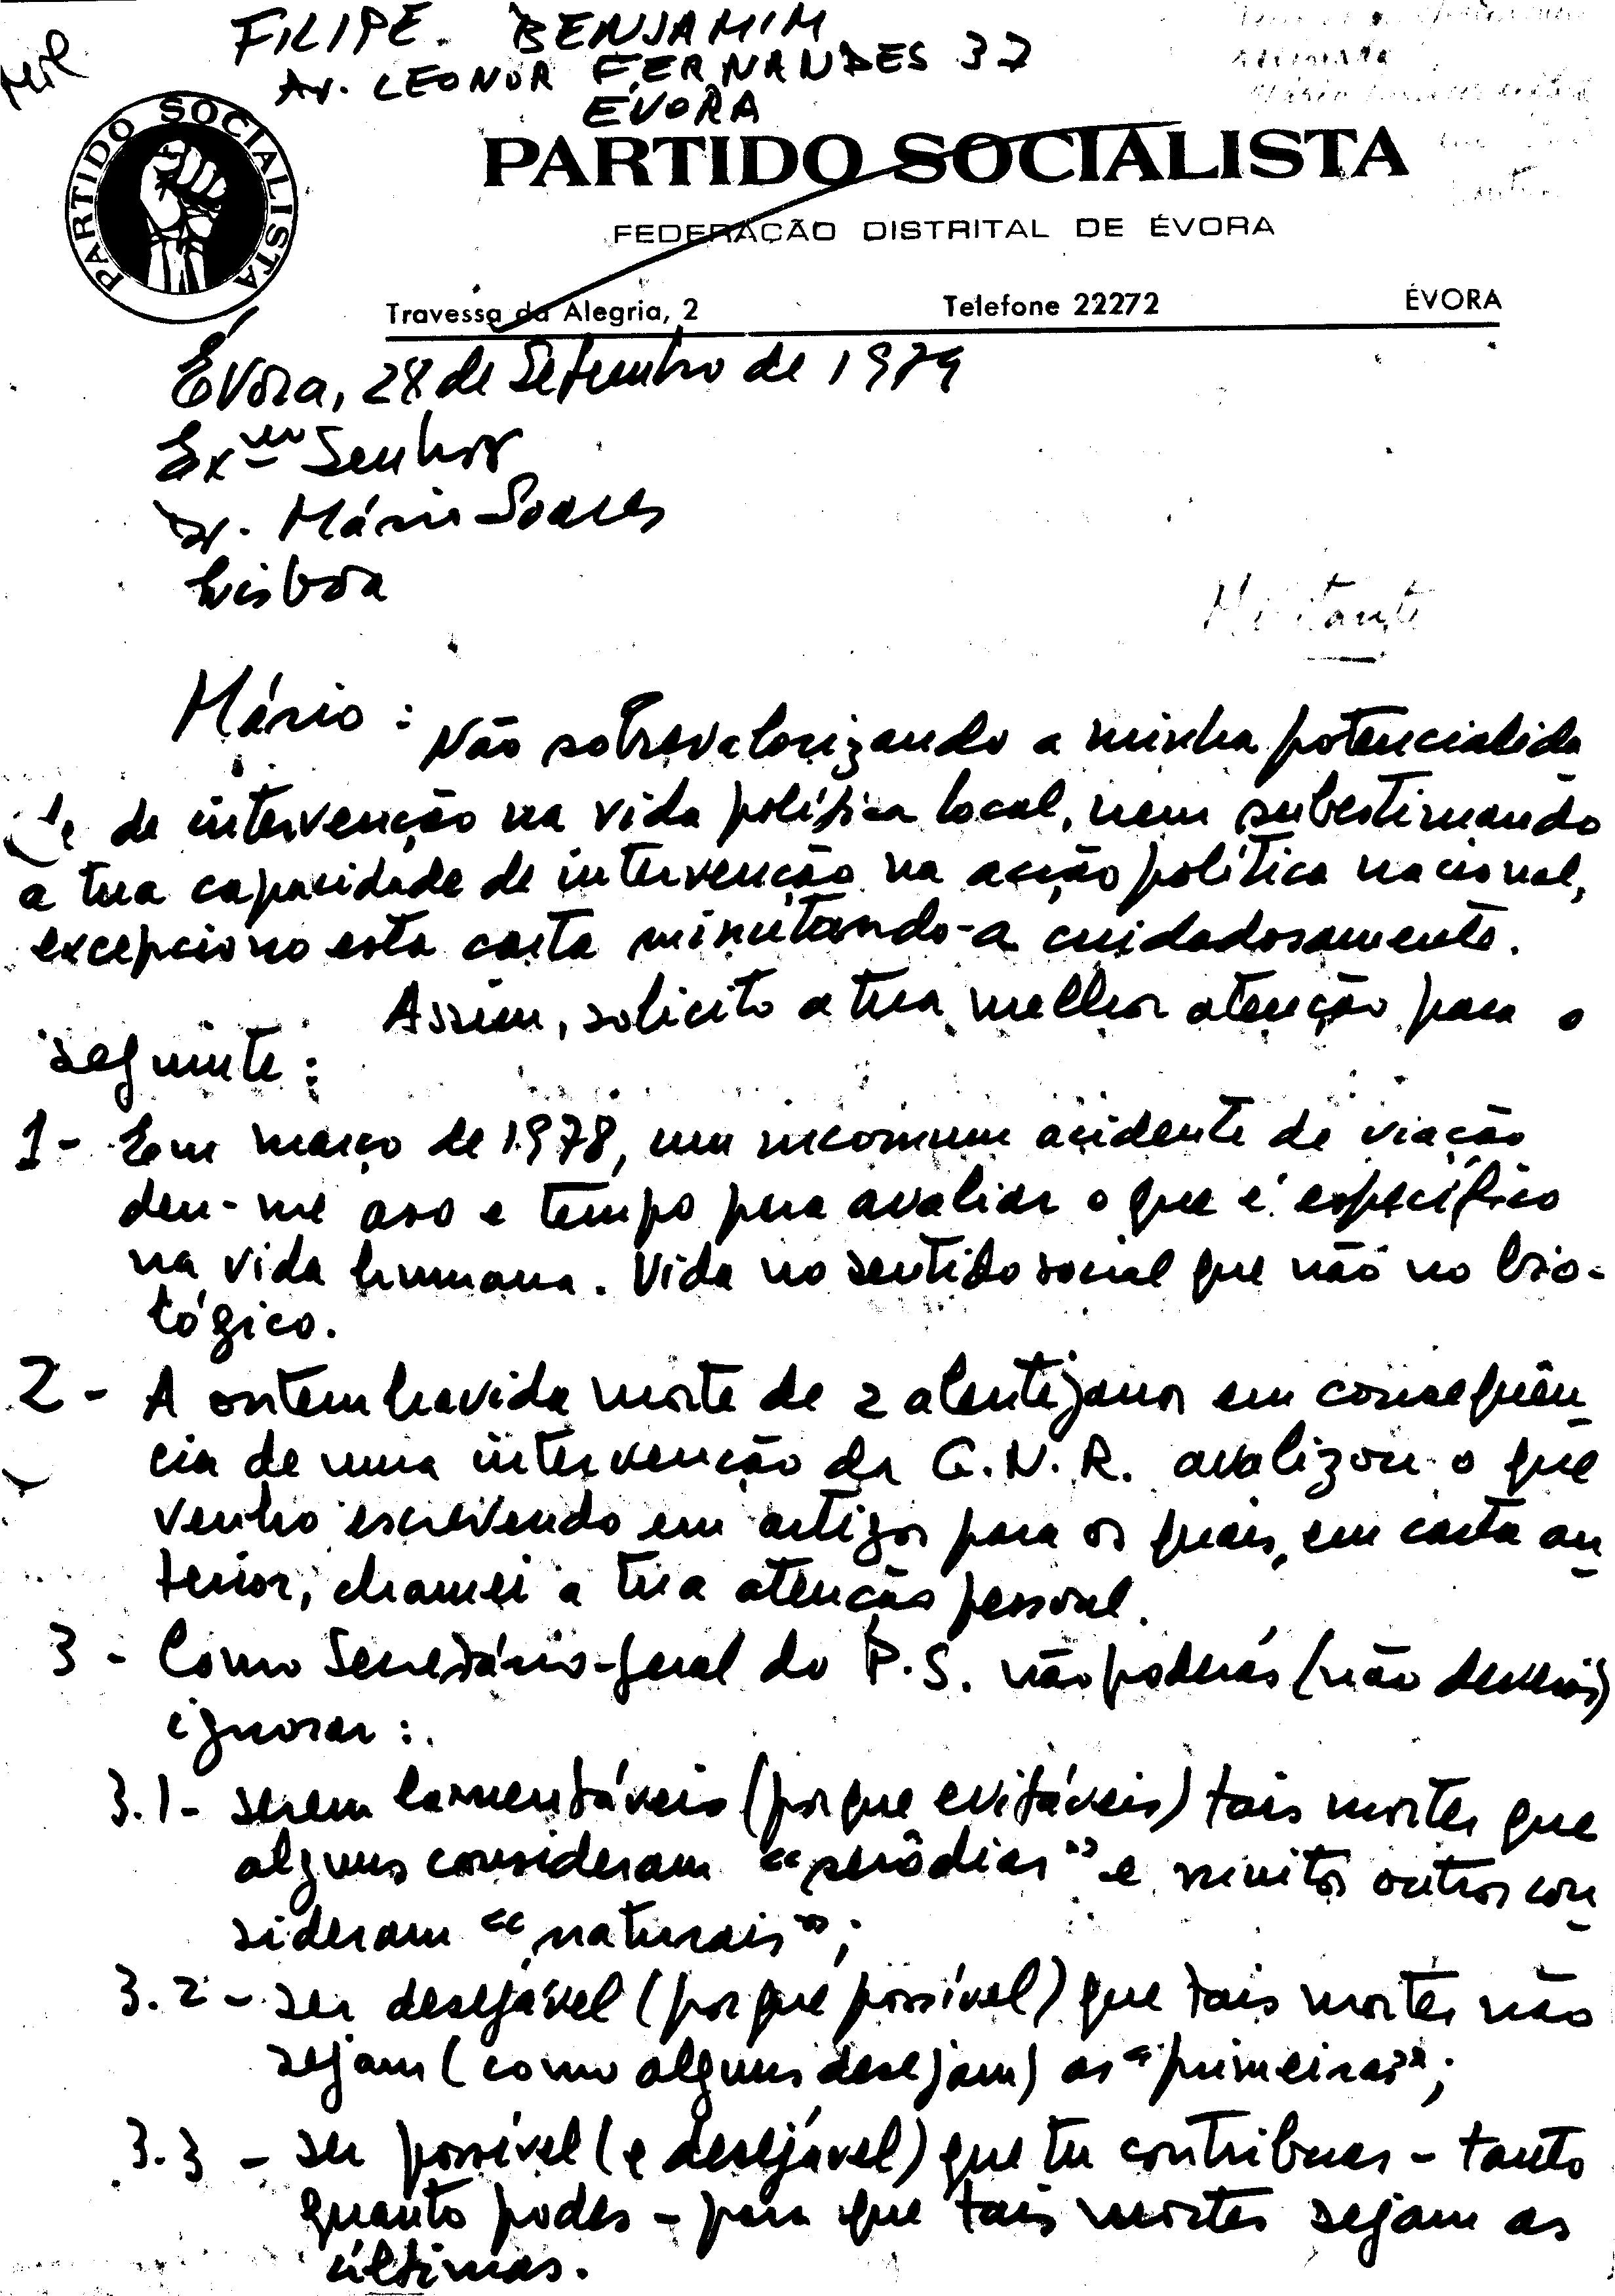 FILIPE. BENJAMIM
Av. LEONOR FERNANDES 37
ÉVORA
PARTIDO SOCIALISTA
PARTIDO SOCIALISTA
FEDERAÇÃO DISTRITAL DE ÉVORA
Travessa da Alegria, 2 Telefone 22272 ÉVORA
Évora, 28 de Setembro de 1979
Exmo Senhor
Dr. Mário Soares
Lisboa
Militante
Mário :
Não sobrevalorizando a minha potencialida
de de intervenção na vida política local, nem subestimando
a tua capacidade de intervenção na acção política nacional,
excepciono esta carta minutando-a cuidadosamente.
Assim, solicito a tua melhor atenção para o
seguinte :
1- Em março de 1978, um incomum acidente de viação
deu-me aso e tempo para avaliar o que é específico
na vida humana. Vida no sentido social que não no bio-
lógico.
2 - A ontem havida morte de 2 alentejanos em consequên
cia de uma intervenção da G.N.R. avalizou o que
venho escrevendo em artigos para os quais, em carta an
terior, chamei a tua atenção pessoal.
3 - Como Secretário-geral do P.S. não poderás (não deverás)
ignorar :
3.1- serem lamentáveis (porque evitáveis) tais mortes que
alguns consideram "
" e muitos outros con
sideram "naturais";
3.2 - ser desejável (porque possível) que tais mortes não
sejam (como alguns desejam) as "primeiras";
3.3 - ser possível (e desejável) que tu contribuas - tanto
quanto podes - para que tais mortes sejam as
últimas.